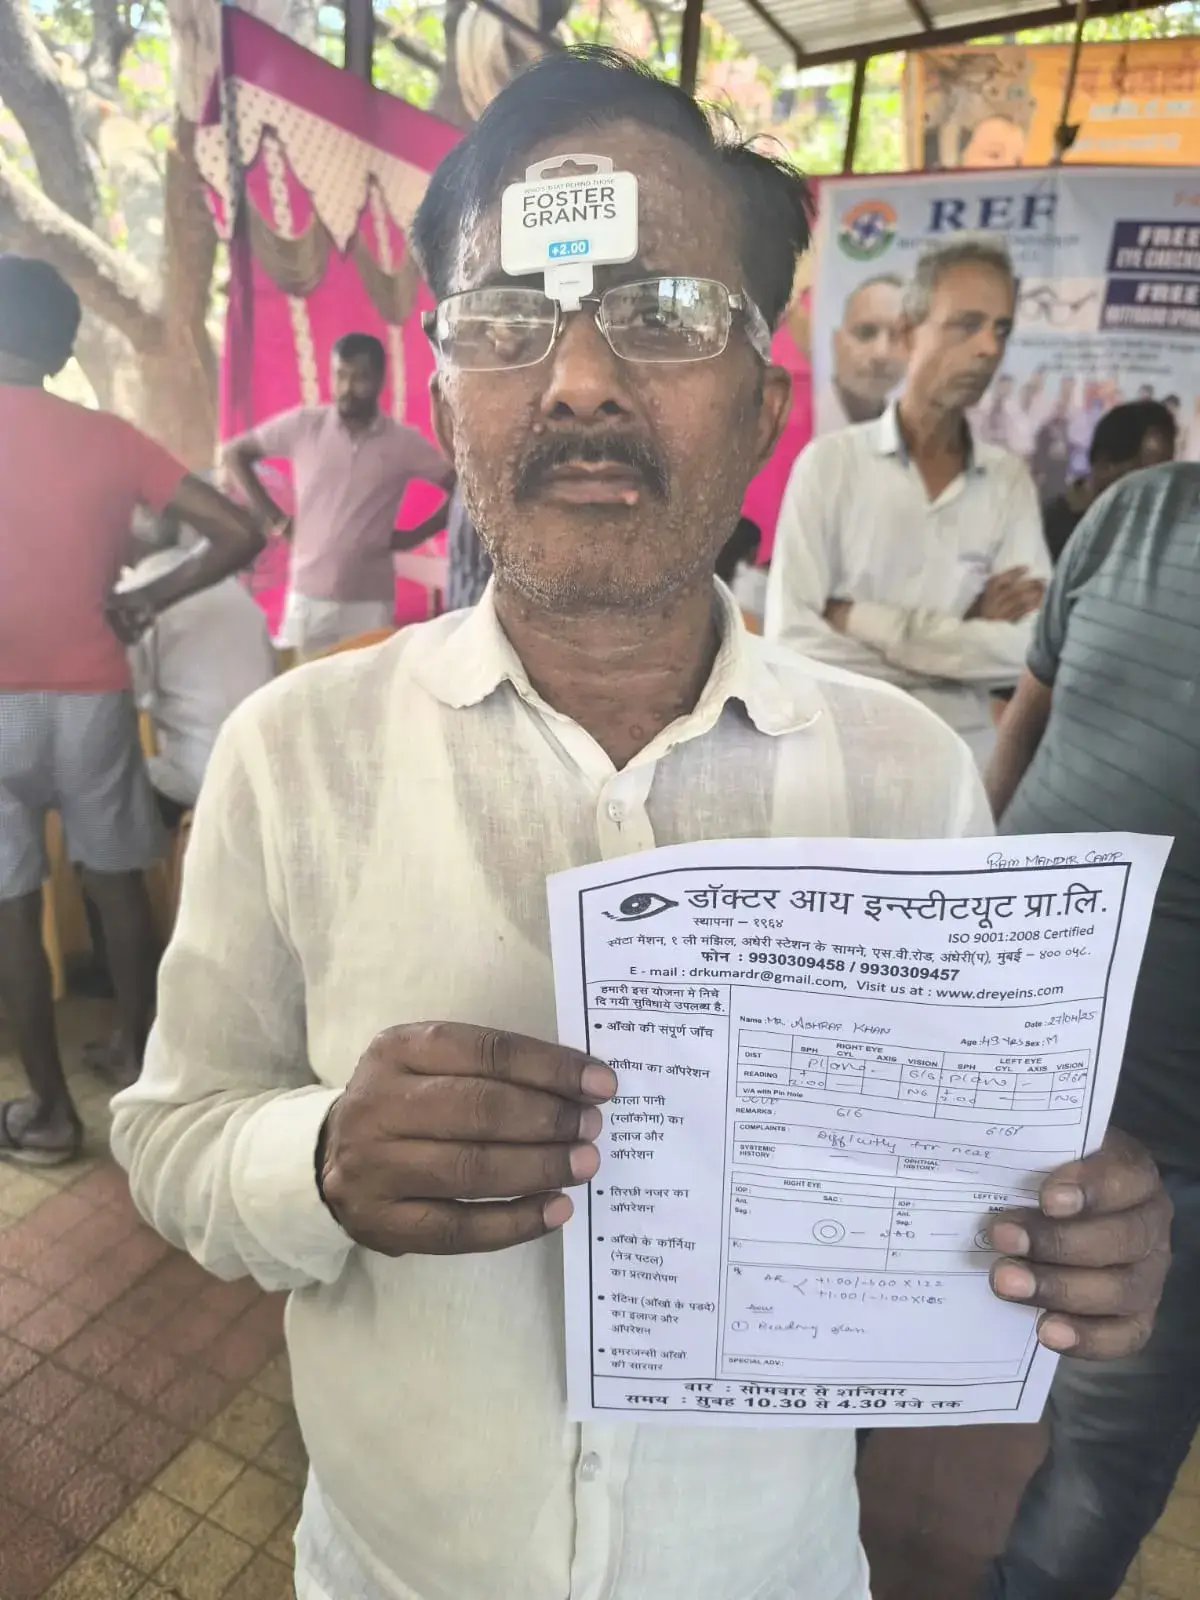 WHO'S THAT BEHIND THOSE
FOSTER
GRANTS
+2.00
REF
FREE
EYE CHECKUP
FREE
RAM MANDIR CAMP
डॉक्टर आय इन्स्टीटयूट प्रा.लि.
स्थापना – १९६४
ISO 9001:2008 Certified
स्पॅटा मेंशन, १ ली मंझिल, अंधेरी स्टेशन के सामने, एस.वी.रोड, अंधेरी(प), मुंबई – ४०० ०५८.
फोन : 9930309458 / 9930309457
E - mail : drkumardr@gmail.com, Visit us at : www.dreyeins.com
हमारी इस योजना मे निचे
दि गयी सुविधाये उपलब्ध है.
• आँखो की संपूर्ण जाँच
मोतीया का ऑपरेशन
काला पानी
(ग्लॉकोमा) का
इलाज और
ऑपरेशन
• तिरछी नजर का
ऑपरेशन
• आँखो के कॉर्निया
(नेत्र पटल)
का प्रत्यारोपण
• रेटिना (आँखो के पडदे)
का इलाज और
ऑपरेशन
• इमरजन्सी आँखो
की सारवार
Name : MR. ASHRAF KHAN Date : 27/04/25
Age : 49 YRS Sex : M
RIGHT EYE LEFT EYE
SPH CYL AXIS VISION SPH CYL AXIS VISION
DIST Plano - 6/6 Plano - 6/6P
READING +2.00 — N6 +2.00 — N6
V/A with Pin Hole
REMARKS : 6/6 6/6P
COMPLAINTS : Difficulty for near
SYSTEMIC HISTORY : — OPHTHAL HISTORY : —
RIGHT EYE LEFT EYE
IOP : SAC : IOP : SAC
Ant. Seg.: — NAD — Ant. Seg.:
F: F:
Rx AR < +1.00/-1.00 X 122
+1.00/-1.00 X 105
① Reading glass
SPECIAL ADV.:
वार : सोमवार से शनिवार
समय : सुबह 10.30 से 4.30 बजे तक